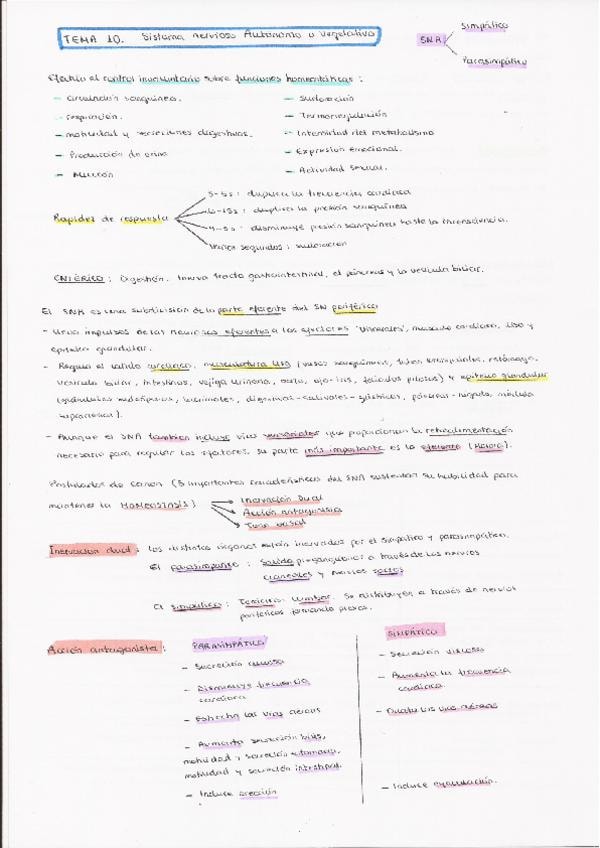 TEMA 10. Sistema nervioso Autónomo o Vegetativo
SNA
Simpático
Parasimpático
Efectúa el control involuntario sobre funciones homeostáticas :
- Circulación sanguínea.
- Respiración.
- motilidad y secreciones digestivas.
- Producción de orina
- Micción
- Sudoración
- Termorregulación
- Intensidad del metabolismo
- Expresión emocional.
- Actividad sexual.
Rapidez de respuesta
3-5s : duplica la frecuencia cardíaca
duplica la presión sanguínea
4-5s : disminuye presión sanguínea hasta la inconsciencia.
Varios segundos : sudoración
ENTÉRICO : Digestión. Inerva tracto gastrointestinal, el páncreas y la vesícula biliar.
El SNA es una subdivisión de la parte eferente del SN periférico
- Lleva impulsos de las neuronas eferentes a los efectores "viscerales", músculo cardíaco, liso y
epitelio glandular.
- Regula el latido cardíaco, musculatura lisa (vasos sanguíneos, tubos bronquiales, estómago,
vesícula biliar, intestinos, vejiga urinaria, ojo-iris, folículos pilosos) y epitelio glandular
(glándulas sudoríparas, lacrimales, digestivas-salivales-gástricas, páncreas-hígado, médula
suprarrenal).
- Aunque el SNA también incluye vías sensoriales que proporcionan la retroalimentación
necesaria para regular los efectores, su parte más importante es la eferente (Motora).
Postulados de Canon (3 importantes características del SNA sustentan su habilidad para
mantener la HOMEOSTASIS)
Inervación Dual
Acción antagonista
Tono basal
Inervación dual : Los distintos órganos están inervados por el simpático y parasimpático.
El parasimpático : Salida preganglionar a través de los nervios
craneales y sacros
El simpático : Torácico, Lumbar. Se distribuyen a través de nervios
periféricos formando plexos.
Acción antagonista :
PARASIMPÁTICO
- Secreción acuosa
- Disminuye frecuencia
cardíaca
- Estrecha las vías aéreas
- Aumenta secreción bilis,
motilidad y secreción estómago,
motilidad y secreción intestinal.
- Induce erección
SIMPÁTICO
- Secreción viscosa
- Aumenta la frecuencia
cardíaca.
- Dilata las vías aéreas
- Induce eyaculación.